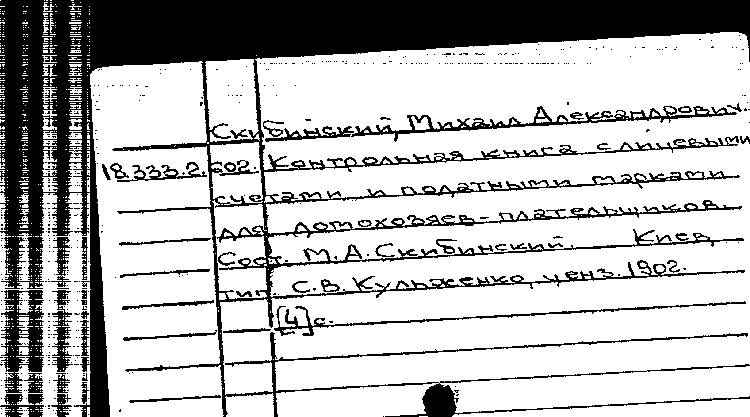 Скибинский, Михаил Александрович.
18.333.2.602. Контрольная книга с лицевыми
счетами и податными марками
для домохозяев-плательщиков.
Сост. М.А. Скибинский. Киев,
тип. С.В. Кульженко, ценз. 1902.
[4] с.